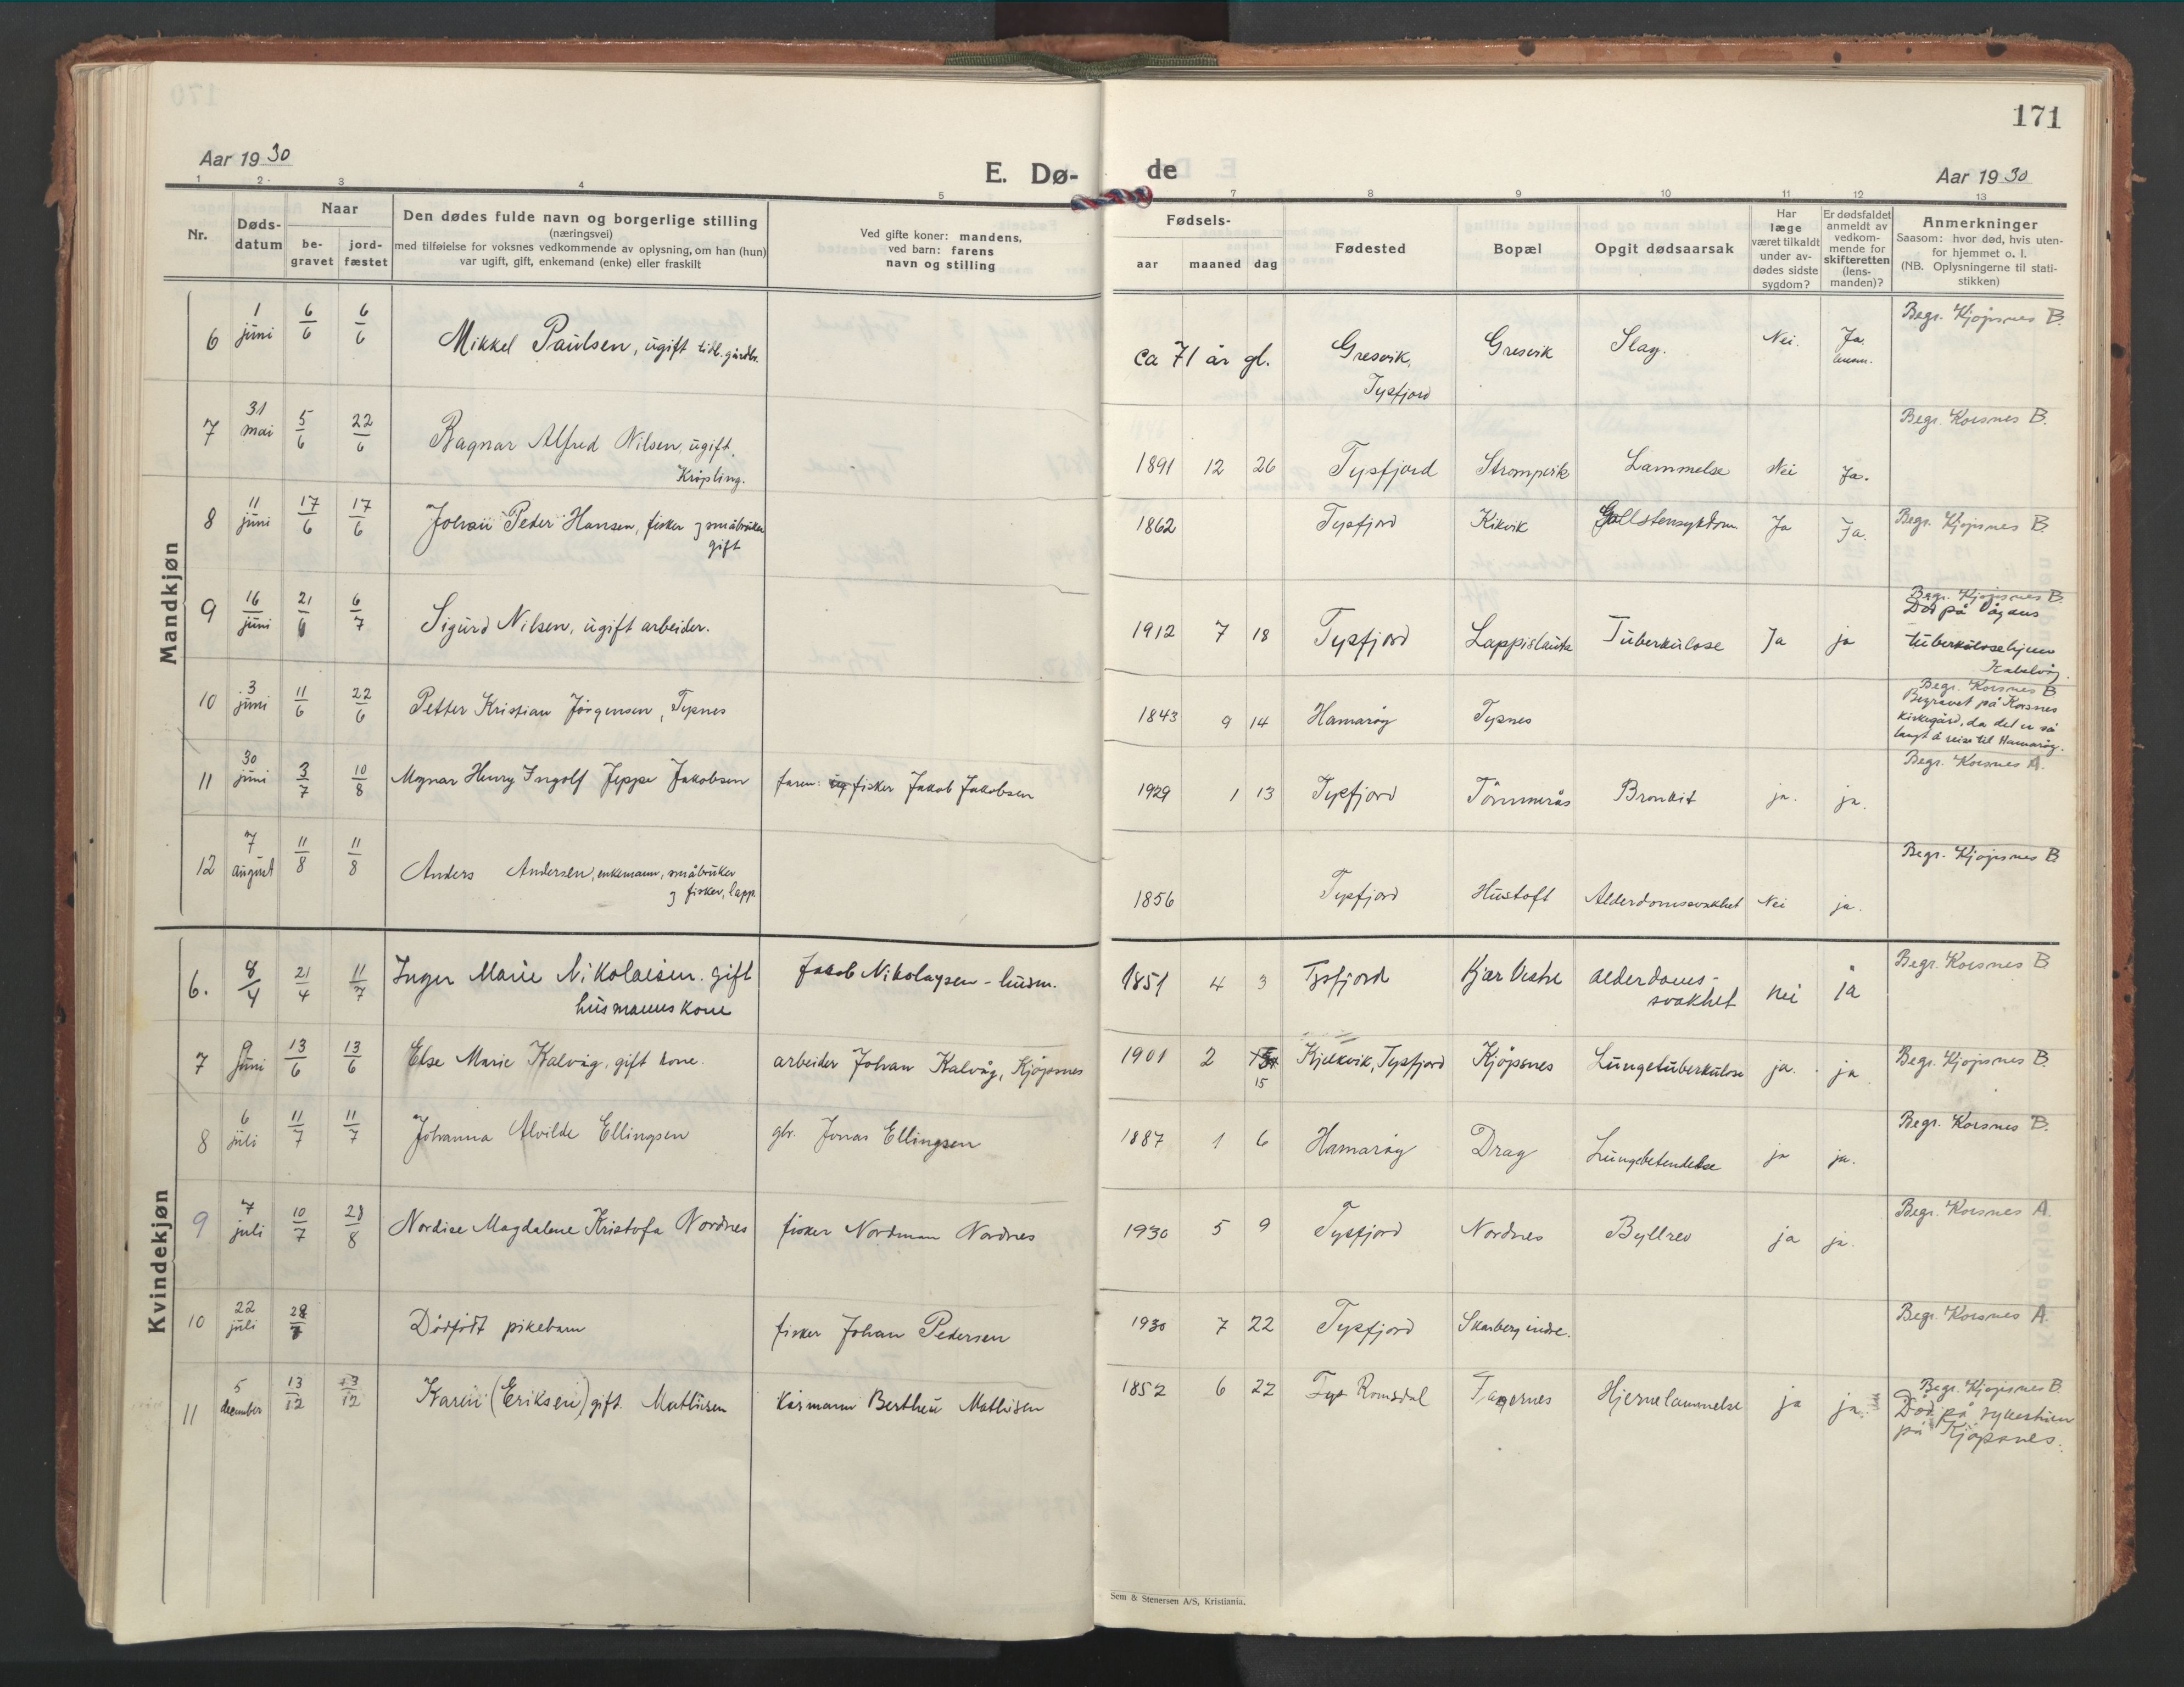 171
Aar 1930
E. Dø-
de
Aar 1930
1 2 3 4 5 7 8 9 10 11 12 13
Nr.
Døds-
datum
Naar
be-
gravet
jord-
fæstet
Den dødes fulde navn og borgerlige stilling
(næringsvei)
med tilføielse for voksnes vedkommende av oplysning, om han (hun)
var ugift, gift, enkemand (enke) eller fraskilt
Ved gifte koner: mandens,
ved barn: farens
navn og stilling
Fødsels-
aar maaned dag
Fødested
Bopæl
Opgit dødsaarsak
Har
læge
været tilkaldt
under av-
dødes sidste
sygdom?
Er dødsfaldet
anmeldt av
vedkom-
mende for
skifteretten
(lens-
manden)?
Anmerkninger
Saasom: hvor død, hvis uten-
for hjemmet o. l.
(NB. Oplysningerne til stati-
stikken)
Mandkjøn
6 1 juni 6/6 6/6 Mikkel Paulsen, ugift tidl. gårdbr. ca 71 år gl. Gresvik, Gresvik Slag. Nei. Ja. Begr. Kjøpsnes B.
Tysfjord
7 31 mai 5/6 22/6 Ragnar Alfred Nilsen, ugift. 1891 12 26 Tysfjord Strompvik Lammelse Nei Ja. Begr. Korsnes B.
Krøpling.
8 11 juni 17/6 17/6 Johan Peder Hansen, fisker og småbruker 1862 Tysfjord Kikvik Gallstensykdom Ja Ja. Begr. Kjøpsnes B.
gift
9 16 juni 21/6 6/7 Sigurd Nilsen, ugift arbeider. 1912 7 18 Tysfjord Tuberkulose Ja ja Begr. Kjøpsnes B.
Død på Vågans
tuberkulosehjem
Kabelvåg.
10 3 juni 11/6 22/6 Petter Kristian Jörgensen, Tysnes 1843 9 14 Hamarøy Tysnes Begr. Korsnes B
Begravet på Korsnes
kirkegård, da det er så
langt å reise til Hamarøy.
11 30 juni 3/7 10/8 Magnar Henry Ingolf Jeppe Jakobsen faren: fisker Jakob Jakobsen 1929 1 13 Tysfjord Tömmerås Bronkit ja. ja. Begr. Korsnes A.
12 7 august 11/8 11/8 Anders Andersen, enkemann, småbruker 1856 Tysfjord Hustoft Alderdomssvakhet Nei ja. Begr. Kjøpsnes B
og fisker, lapp
Kvindekjøn
6. 8/4 21/4 11/7 Inger Marie Nikolaisen. gift Jakob Nikolaysen - husm. 1851 4 3 Tysfjord Kjær Vestre alderdoms- nei ja Begr. Korsnes B
husmannskone svakhet
7 9 juni 13/6 13/6 Else Marie Kalvåg, gift kone. arbeider Johan Kalvåg, Kjøpsnes 1901 2 15 Kjelkvik, Tysfjord Kjøpsnes Lungetuberkulose ja. ja Begr. Kjøpsnes B.
8 6 juli 11/7 11/7 Johanna Alvilde Ellingsen gbr. Jonas Ellingsen 1887 1 6 Hamarøy Drag Lungebetendelse ja ja. Begr. Korsnes B.
9 7 juli 10/7 28/8 Nordise Magdalene Kristofa Nordnes fisker Nordman Nordnes 1930 5 9 Tysfjord Nordnes Byllrev ja ja. Begr. Korsnes A.
10 22 juli 28/7 Dødfødt pikebarn fisker Johan Pedersen 1930 7 22 Tysfjord Skarberg indre. Begr. Korsnes A.
11 5 december 13/12 13/12 Karen (Eriksen) gift Mathisen kårmann Bertheu Mathisen 1852 6 22 Romsdal Taernes Hjernelammelse ja ja Begr. Kjøpsnes B.
Død på sykestuen
på Kjøpsnes.
Sem & Stenersen A/S, Kristiania.